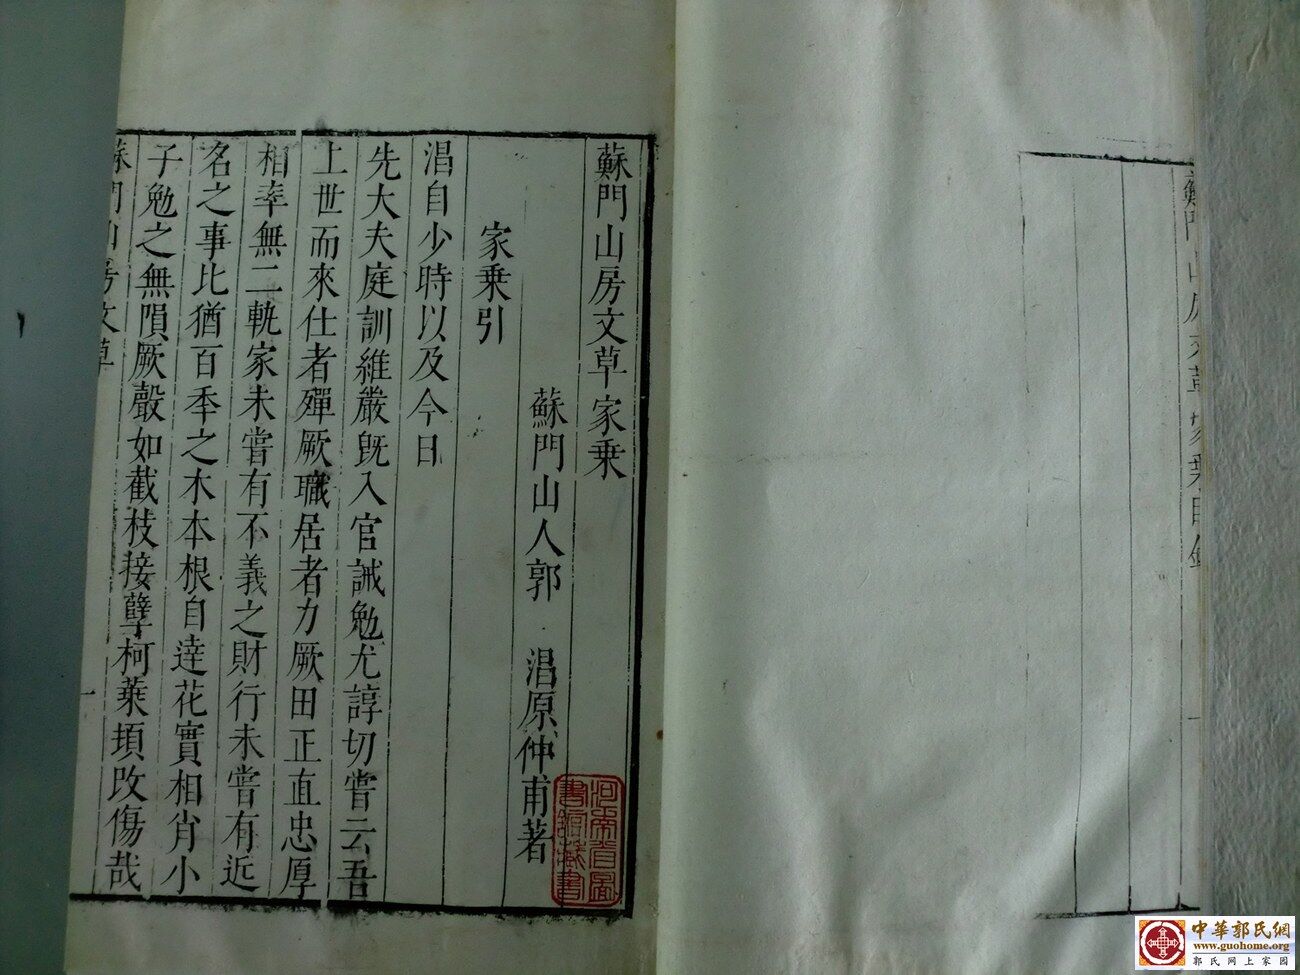 蘇門山房文草家乗目
蘇門山房文草家乗
蘇門山人郭　淐原仲甫著
家乗引
淐自少時以及今日
先大夫庭訓維嚴旣入官誡勉尤諄切嘗云吾
上世而來仕者殫厥職居者力厥田正直忠厚
相率無二軌家未嘗有不義之財行未嘗有近
名之事比猶百年之木本根自達花實相肖小
子勉之無隕厥聲如截枝接孽柯葉頃改傷哉
蘇門山房文草
一
河南省圖
書館藏書
中華郭氏網
www.guohome.org
郭氏网上家园